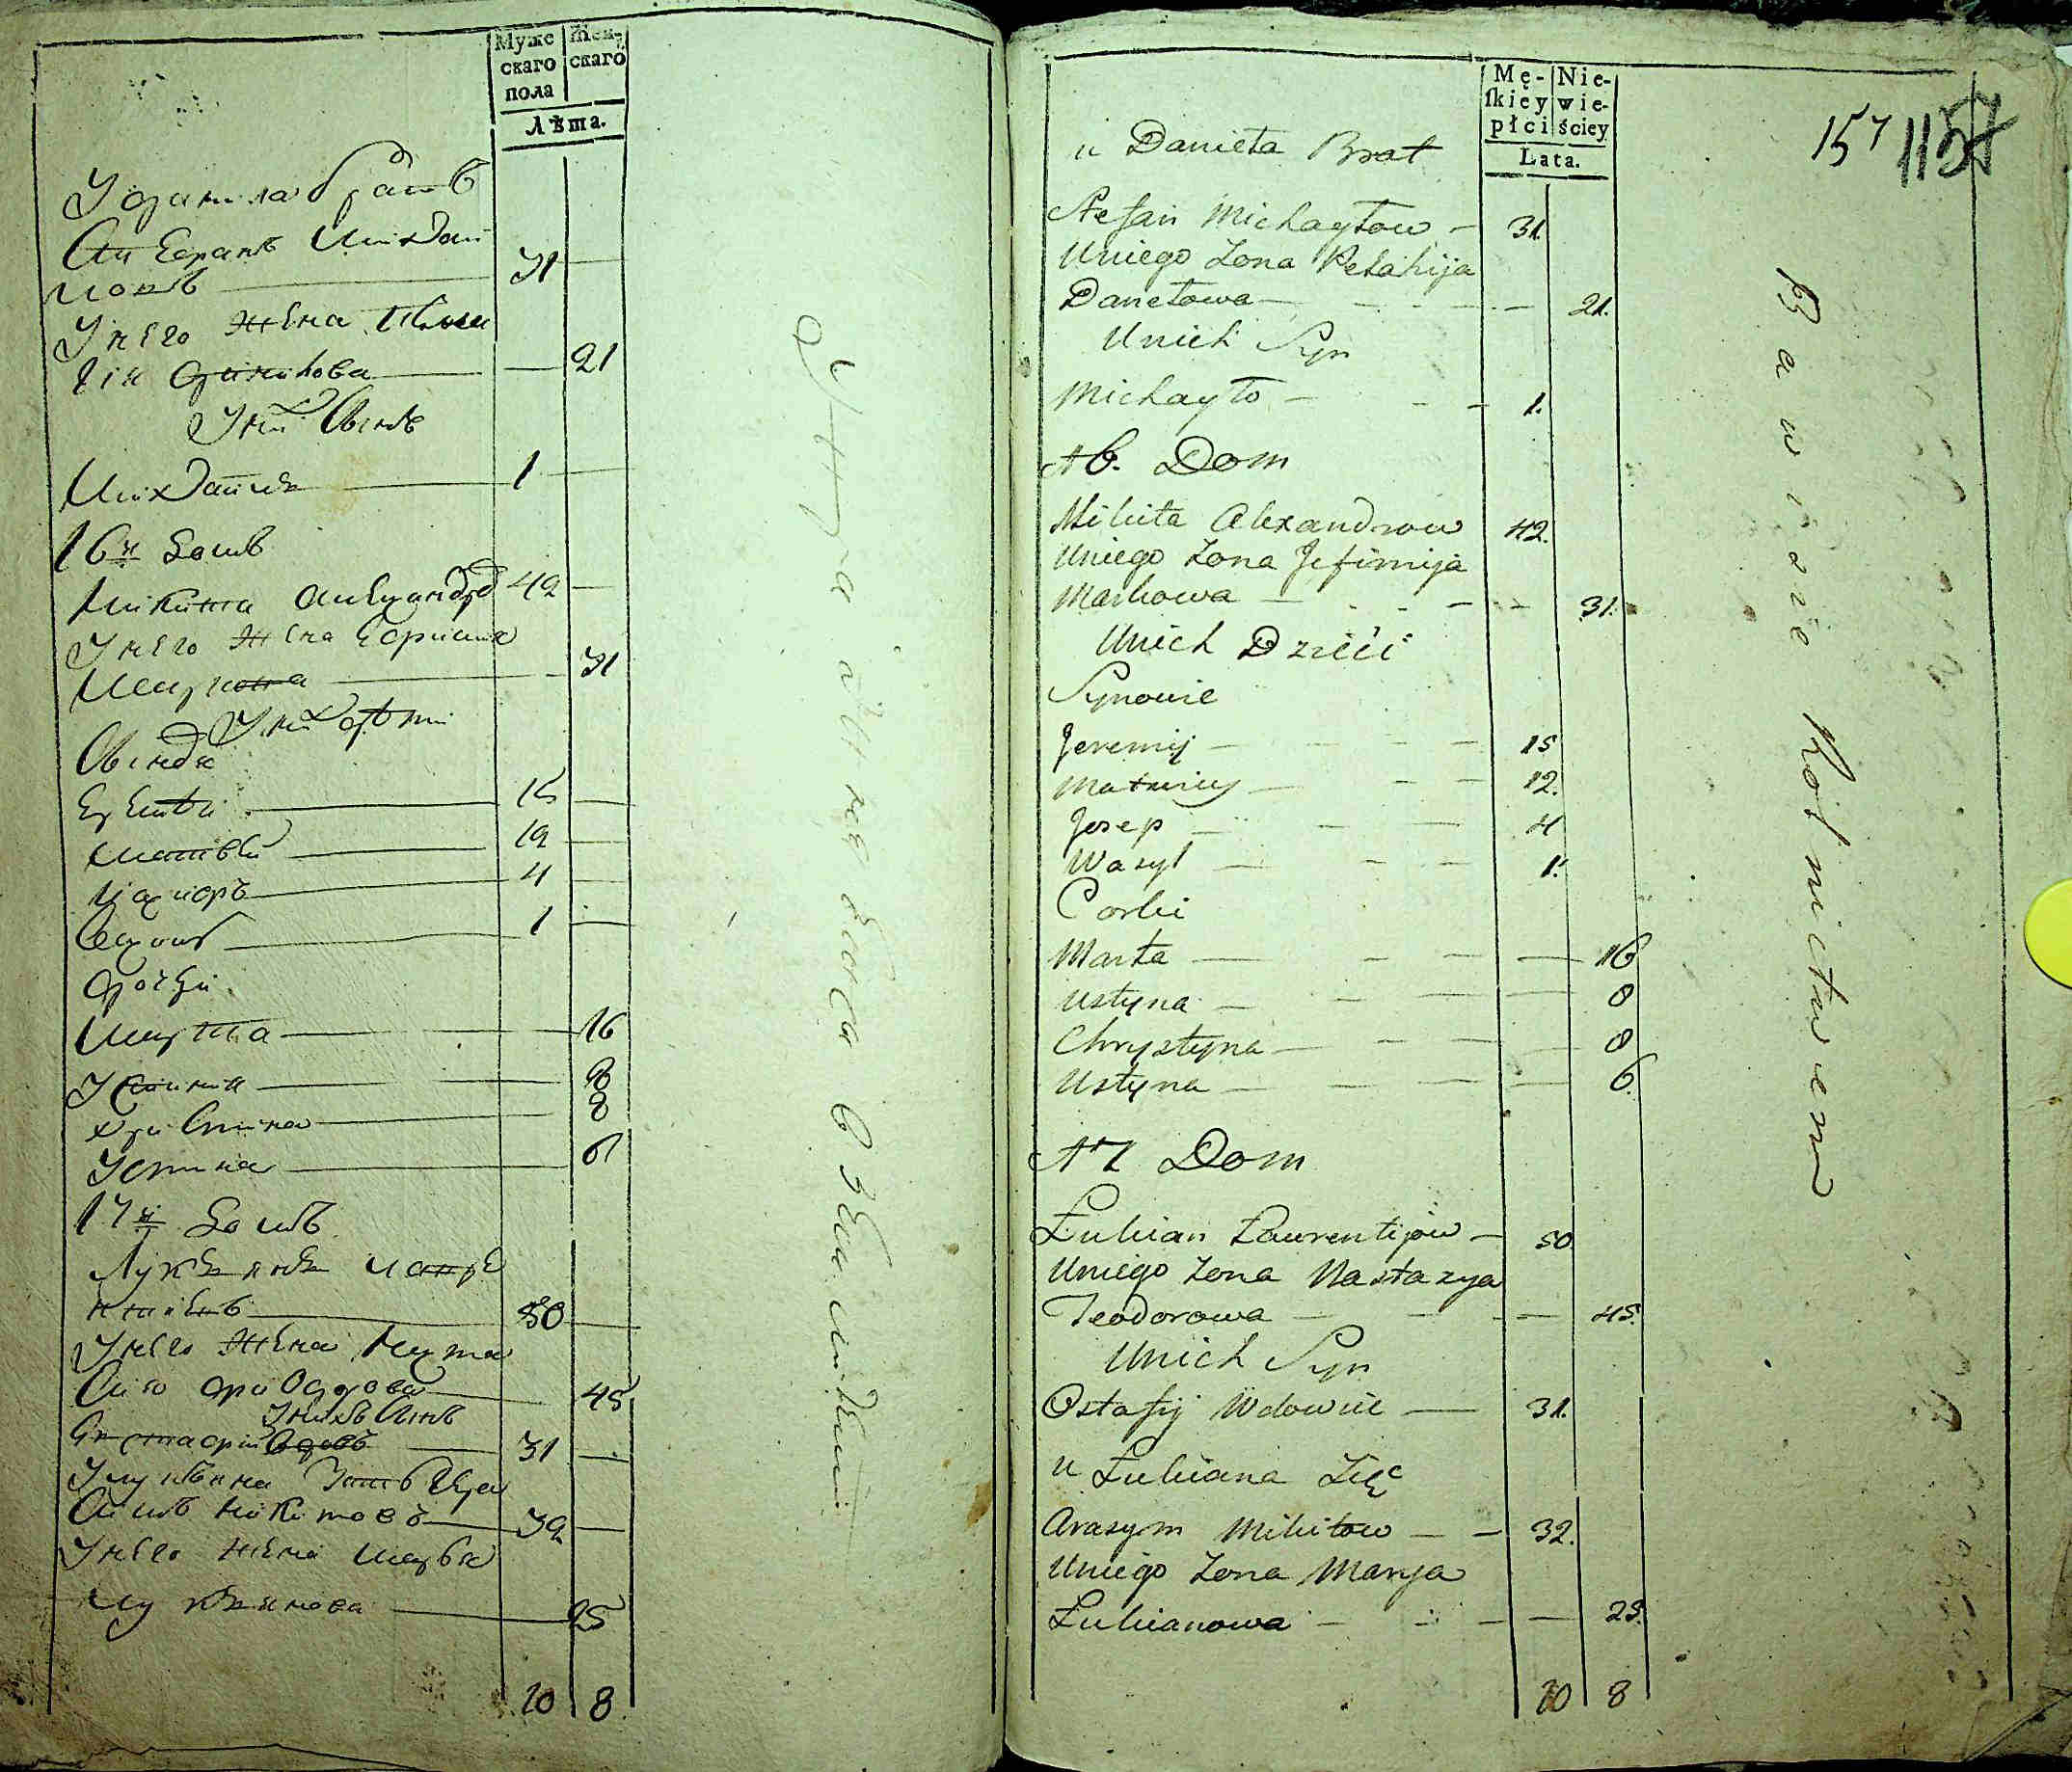 Муже
скаго
пола
Жен-
скаго
Лѣта.
У данила братъ
Степанъ Михай
ловъ 31
У него жена Пела
гія Данилова 21
У них Сынъ
Михайла 1
16й Домъ
Микита Александров 42
У него жена Ефимия
Маркова 31
У них дети
Сыновя
Еремѣй 15
Матвей 12
Иосиф 4
Василь 1
Дочери
Марта 16
Устиния 8
Христина 8
Устина 6
17й Домъ
Лукьянъ Лавре
нтиевъ 50
У него жена Наста
сия Фиодорова 45
У нихъ Сынъ
Евстафий Вдовъ 31
У лукьяна зять Гера
симъ Никитовъ 32
У него жена Марья
лукьянова 25
10 8
Mę-
skiey
płci
Nie-
wie-
ściey
Lata.
157 1157
u Daniela Brat
Stefan Michayłow - 31.
Uniego Zona Pelahija
Danelowa - 21.
Unich Syn
Michayło - 1.
16. Dom
Mikita Alexandrow 42.
Uniego Zona Jefimija
Markowa - 31.
Unich Dzieci
Synowie
Jeremij - 15
Matwiey - 12.
Josep - 4
Wasyl - 1.
Corki
Marta - 16
Ustyna - 8
Chrystyna - 8
Ustyna - 6.
17 Dom
Łukian Ławrentijow - 50.
Uniego Zona Nastazya
Teodorowa - 45.
Unich Syn
Ostafij Wdowiec - 31.
u Łukiana Zięć
Arasym Mikitow - 32.
Uniego Zona Marya
Łukianowa - 25.
10 8
Bawi się Rolnictwem